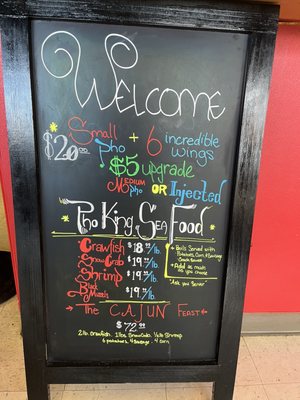 Welcome
$20.00 Small Pho + 6 incredible wings
$5 upgrade
Medium Pho OR Injected
Pho King Sea Food
Crawfish $18.95/lb.
Snow Crab $19.95/lb.
Shrimp $19.95/lb.
Black Mussels $19.95/lb.
• Boils Served with Potatoes, Corn, & Sausage
• Add as much as you choose
"Ask your Server"
The CAJUN Feast
$72.00
2 lb Crawfish 1 lb Snow Crab 1/2 lb Shrimp
6 potatoes, 4 sausage, 4 corn